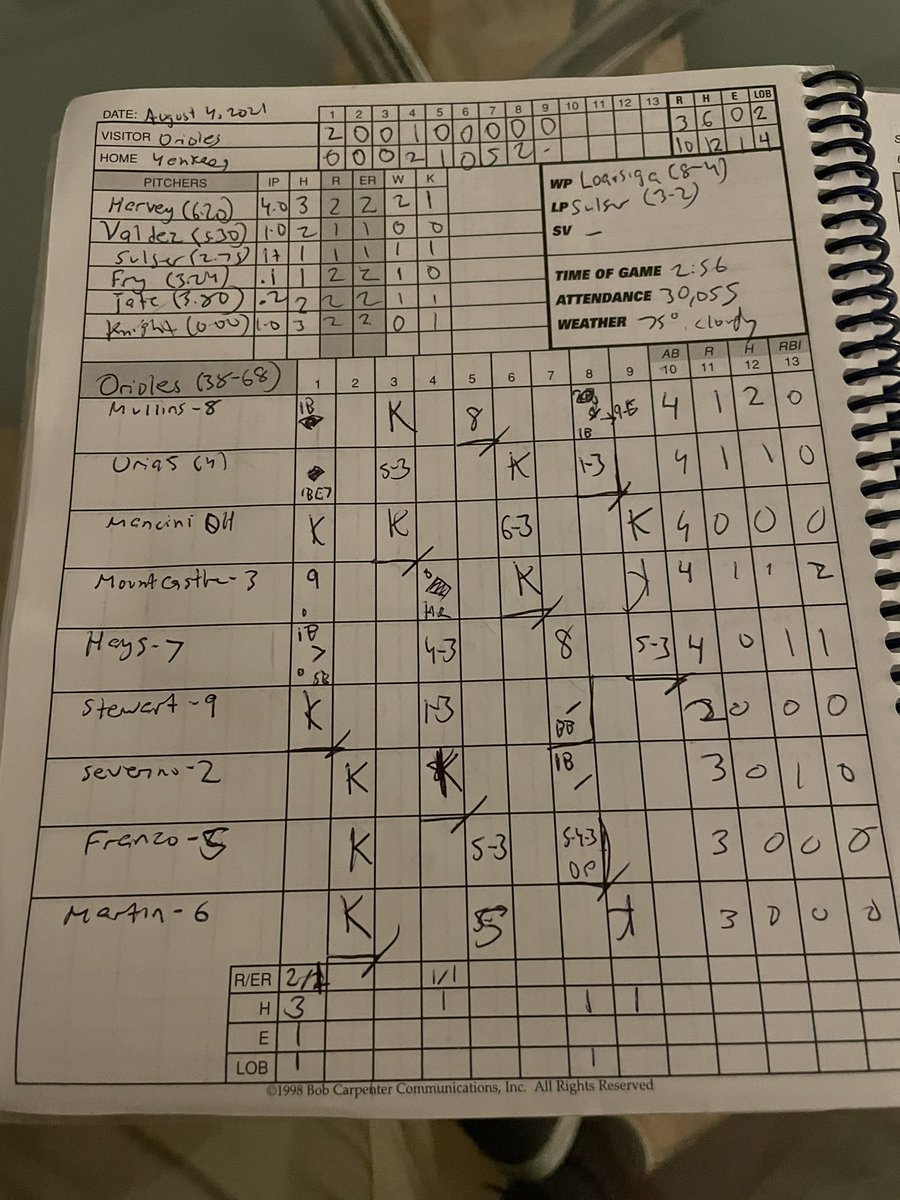 DATE: August 4, 2021 1 2 3 4 5 6 7 8 9 10 11 12 13 R H E LOB
VISITOR Orioles 2 0 0 1 0 0 0 0 0 3 6 0 2
HOME Yankees 0 0 0 2 1 0 5 2 - 10 12 1 4
PITCHERS IP H R ER W K
Harvey (6.20) 4.0 3 2 2 2 1
Valdez (5.30) 1.0 2 1 1 0 0
Sulser (2.75) 1+ 1 1 1 1 1
Fry (3.24) .1 1 2 2 1 0
Tate (3.80) .2 2 2 2 1 1
Knight (0.00) 1.0 3 2 2 0 1
WP Loaisiga (8-4)
LP Sulser (3-2)
SV -
TIME OF GAME 2:56
ATTENDANCE 30,055
WEATHER 75°, cloudy
AB R H RBI
Orioles (38-68) 1 2 3 4 5 6 7 8 9 10 11 12 13
Mullins-8 1B K 8 1B 9-E 4 1 2 0
Urias (4) 1BE7 5-3 K 1-3 4 1 1 0
Mancini DH K K 6-3 K 4 0 0 0
Mountcastle-3 9 HR K K 4 1 1 2
Hays-7 1B SB 4-3 8 5-3 4 0 1 1
Stewart-9 K 1-3 BB 0 0 0
Severino-2 K K 1B 3 0 1 0
Franco-5 K 5-3 5-4-3 DP 3 0 0 0
Martin-6 K 5 K 3 0 0 0
R/ER 1/1
H 3 1 1 1
E 1
LOB 1 1
©1998 Bob Carpenter Communications, Inc. All Rights Reserved